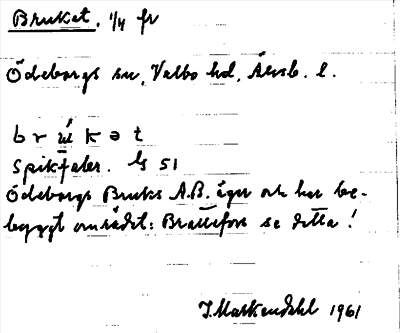 Bruket. 1/4 fr
Ödeborgs sn, Valbo hd, Älvsb. l.
b r ú̱ k ə t
Spikfabr. ls 51
Ödeborgs Bruks A.B. äger och har be-
byggt området: Brattefors se detta!
J. Markendahl 1961